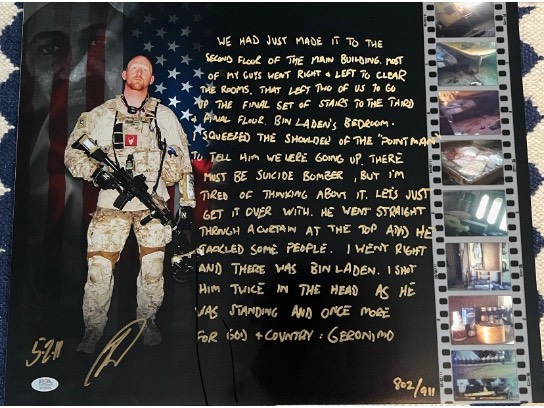 WE HAD JUST MADE IT TO THE
SECOND FLOOR OF THE MAIN BUILDING. MOST
OF MY GUYS WENT RIGHT + LEFT TO CLEAR
THE ROOMS. THAT LEFT TWO OF US TO GO
UP THE FINAL SET OF STAIRS TO THE THIRD
+ FINAL FLOOR. BIN LADEN'S BEDROOM.
I SQUEEZED THE SHOULDER OF THE "POINTMAN"
TO TELL HIM WE WERE GOING UP. THERE
MUST BE SUICIDE BOMBER, BUT I'M
TIRED OF THINKING ABOUT IT. LET'S JUST
GET IT OVER WITH. HE WENT STRAIGHT
THROUGH A CURTAIN AT THE TOP AND HE
TACKLED SOME PEOPLE. I WENT RIGHT
AND THERE WAS BIN LADEN. I SHOT
HIM TWICE IN THE HEAD AS HE
WAS STANDING AND ONCE MORE
FOR GOD + COUNTRY: GERONIMO
5-2-11
802/911